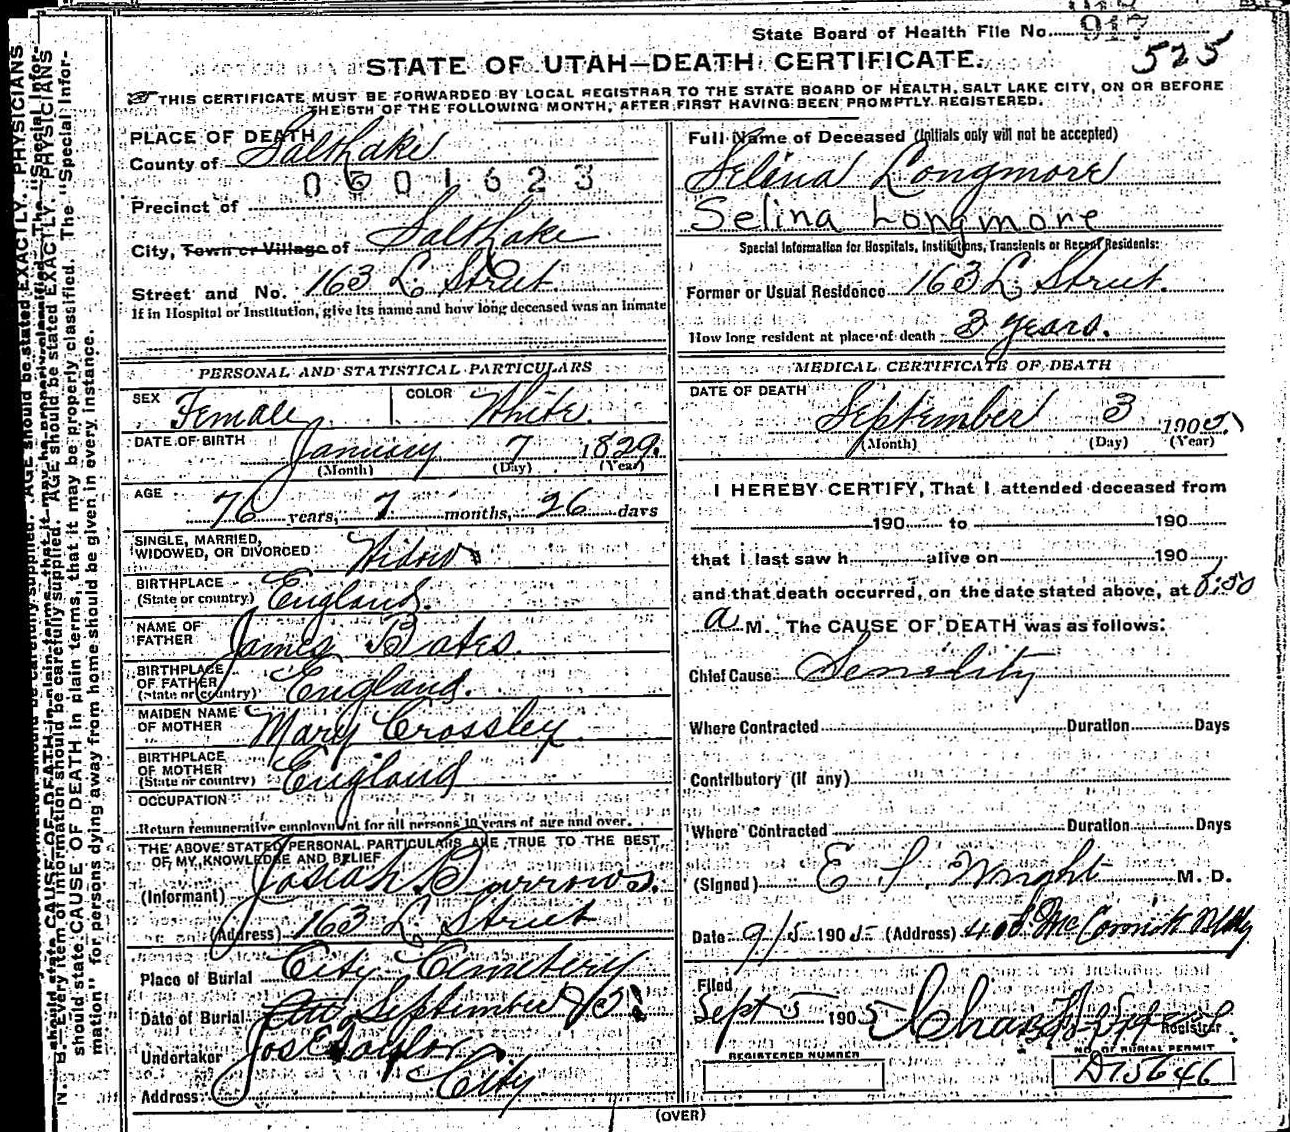 State Board of Health File No. 917
525
STATE OF UTAH—DEATH CERTIFICATE.
THIS CERTIFICATE MUST BE FORWARDED BY LOCAL REGISTRAR TO THE STATE BOARD OF HEALTH, SALT LAKE CITY, ON OR BEFORE
THE 5TH OF THE FOLLOWING MONTH, AFTER FIRST HAVING BEEN PROMPTLY REGISTERED.
PLACE OF DEATH
County of Salt Lake
0501623
Precinct of
City, Town or Village of Salt Lake
Street and No. 163 L Street
If in Hospital or Institution, give its name and how long deceased was an inmate
Full Name of Deceased (Initials only will not be accepted)
Selina Longmore
Selina Longmore
Special Information for Hospitals, Institutions, Transients or Recent Residents:
Former or Usual Residence 163 L Street.
How long resident at place of death 3 years.
PERSONAL AND STATISTICAL PARTICULARS
SEX Female COLOR White
DATE OF BIRTH January 7 1829.
(Month) (Day) (Year)
AGE
76 years, 7 months, 26 days
SINGLE, MARRIED,
WIDOWED, OR DIVORCED Widow
BIRTHPLACE
(State or country) England.
NAME OF
FATHER James Bates.
BIRTHPLACE
OF FATHER
(State or country) England.
MAIDEN NAME
OF MOTHER Mary Crossley
BIRTHPLACE
OF MOTHER
(State or country) England
OCCUPATION
Return remunerative employment for all persons 10 years of age and over.
THE ABOVE STATED PERSONAL PARTICULARS ARE TRUE TO THE BEST
OF MY KNOWLEDGE AND BELIEF
(Informant) Josiah Burrows.
(Address) 163 L Street
Place of Burial City Cemetery
Date of Burial September
Undertaker Jos E Taylor
Address: City
MEDICAL CERTIFICATE OF DEATH
DATE OF DEATH
September 3 1905
(Month) (Day) (Year)
I HEREBY CERTIFY, That I attended deceased from
190 to 190
that I last saw h alive on 190
and that death occurred, on the date stated above, at
a M. The CAUSE OF DEATH was as follows:
Chief Cause Senility
Where Contracted Duration Days
Contributory (if any)
Where Contracted Duration Days
(Signed) Wright M. D.
Date 9/5 1905 (Address) McCornick Bldg
Filed
Sept 5 1905 Chas
Registrar
REGISTERED NUMBER
NO. OF BURIAL PERMIT
D15646
(OVER)
N. B.—Every item of information should be carefully supplied. AGE should be stated EXACTLY. PHYSICIANS
should state CAUSE OF DEATH in plain terms, that it may be properly classified. The "Special Infor-
mation" for persons dying away from home should be given in every instance.